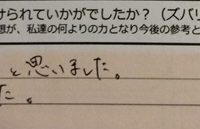 けられていかがでしたか?(ズバリ
想が、私達の何よりの力となり今後の参考と
と思いました。
た。